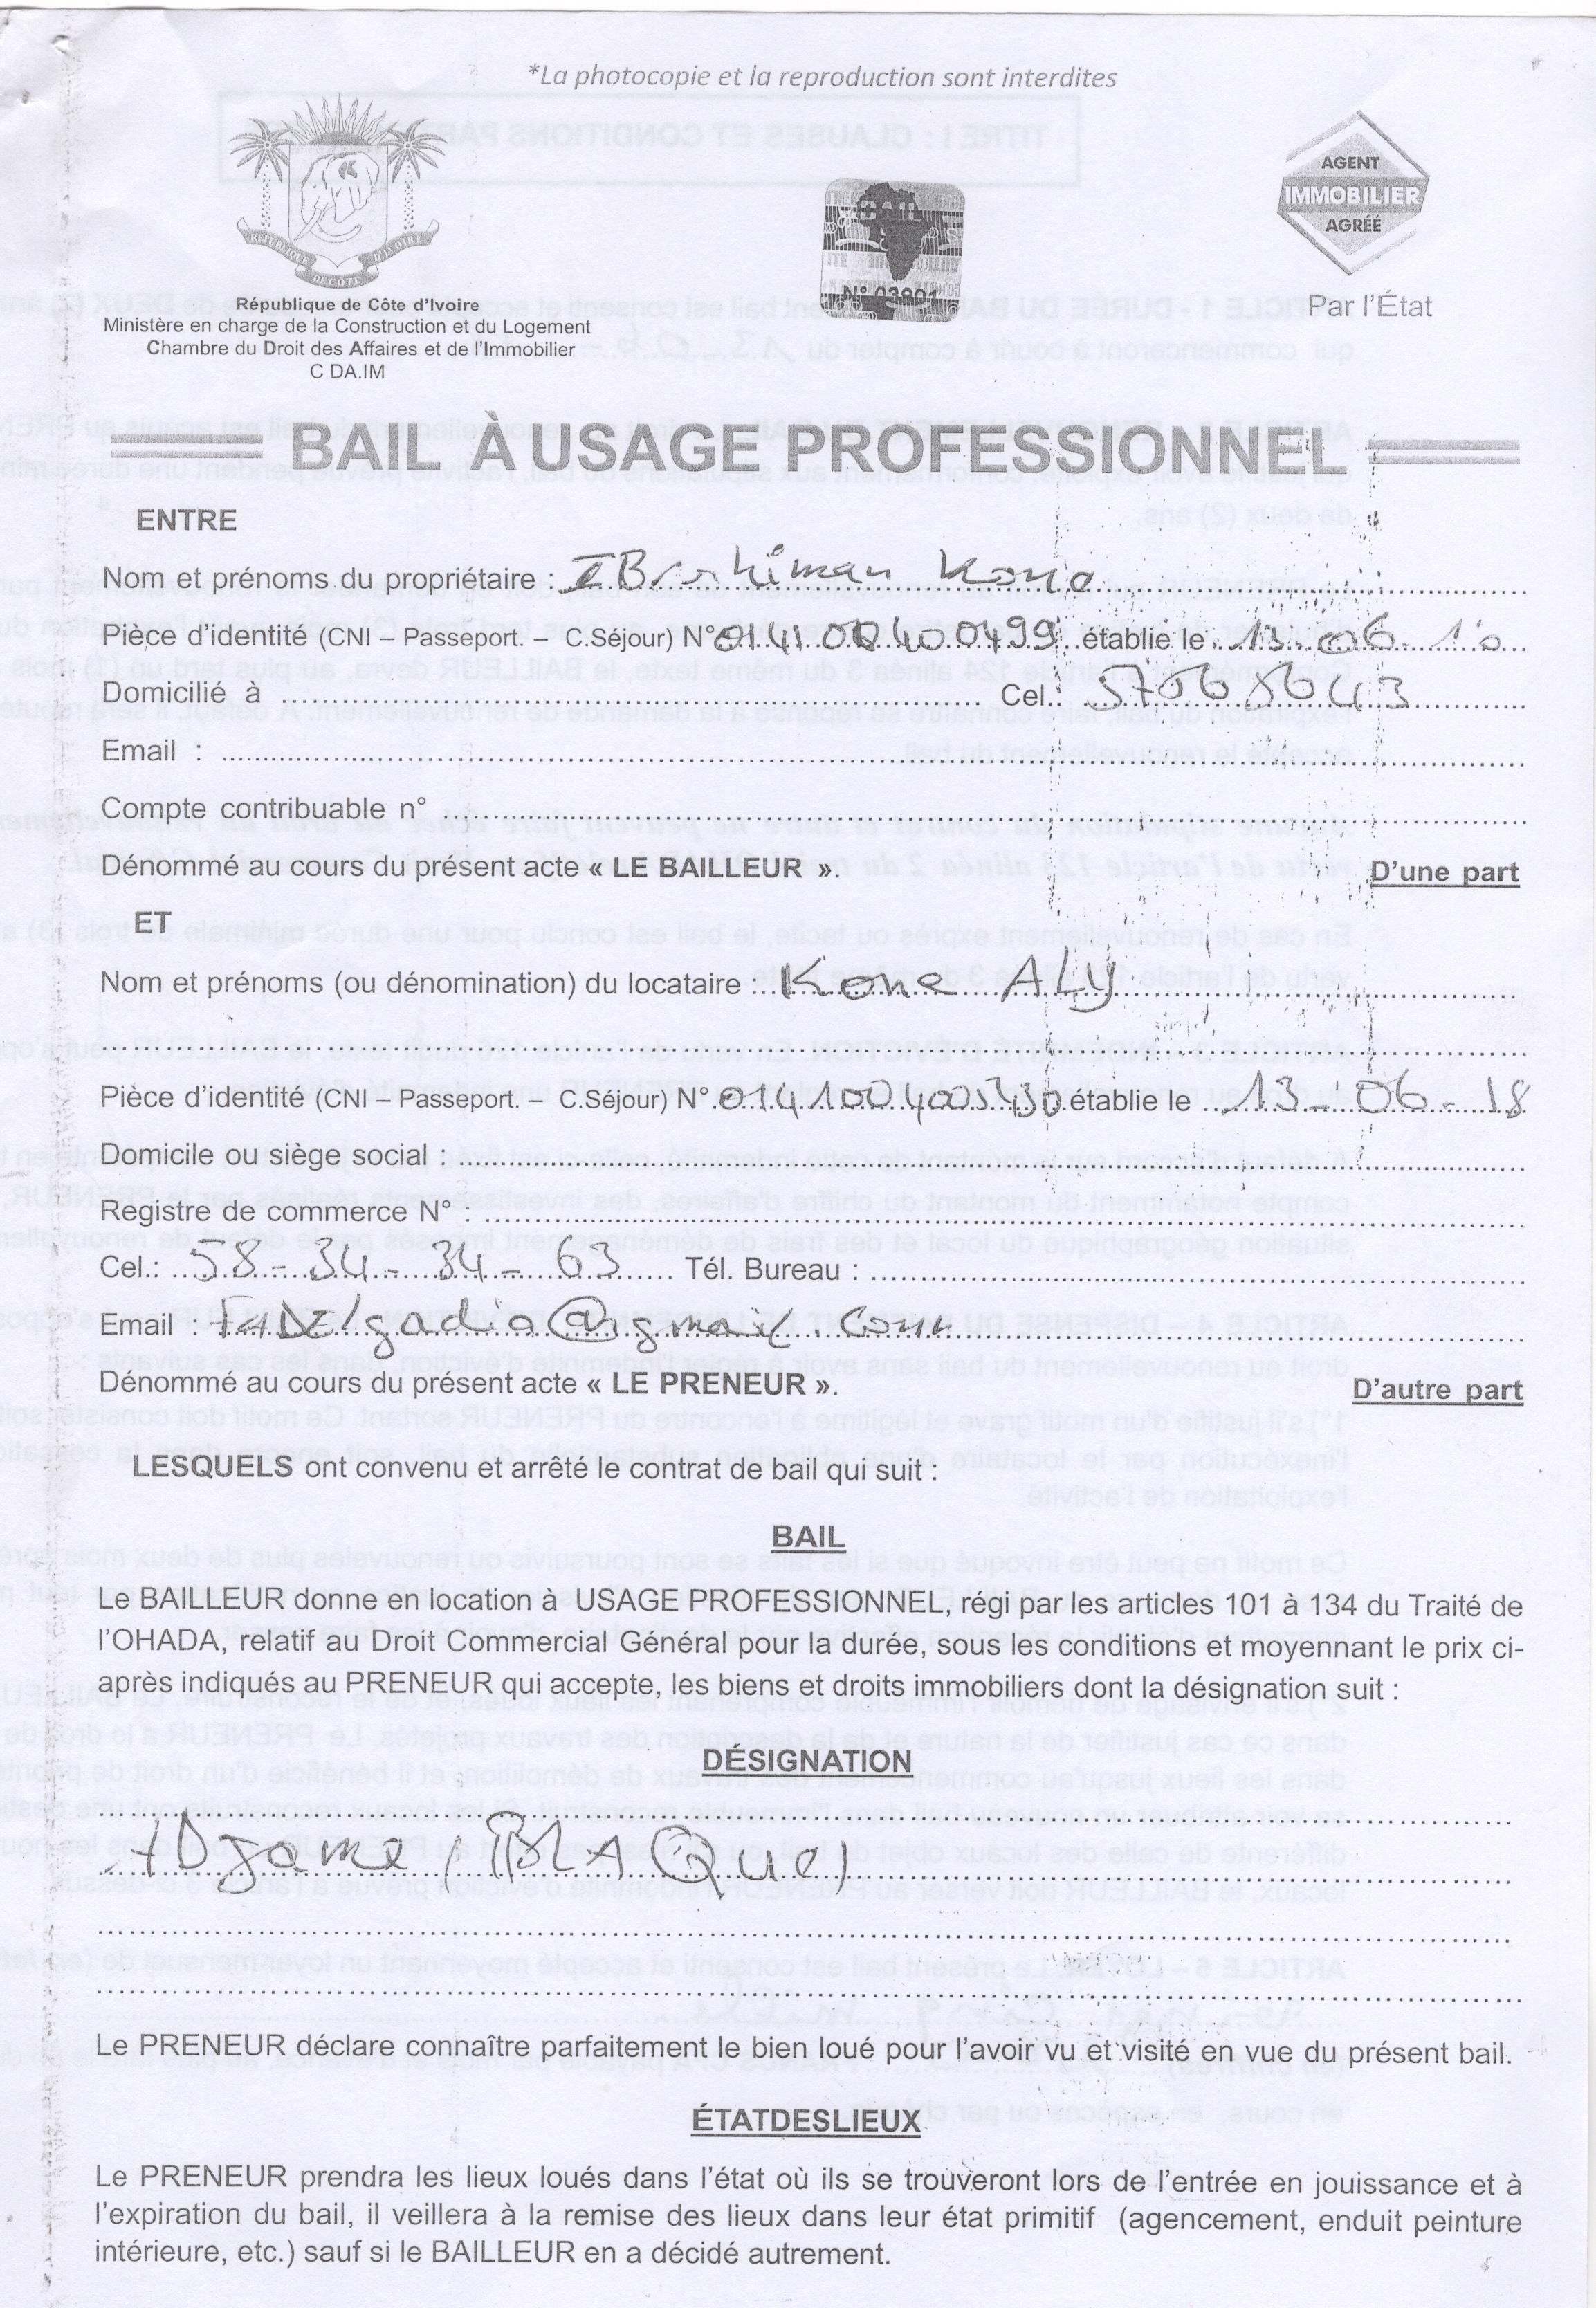 *La photocopie et la reproduction sont interdites
RÉPUBLIQUE DE CÔTE D'IVOIRE
AGENT
IMMOBILIER
AGRÉÉ
Par l'État
N° 03901
République de Côte d'Ivoire
Ministère en charge de la Construction et du Logement
Chambre du Droit des Affaires et de l'Immobilier
C DA.IM
BAIL À USAGE PROFESSIONNEL
ENTRE
Nom et prénoms du propriétaire : IBrahiman Kone
Pièce d'identité (CNI – Passeport. – C.Séjour) N° établie le : 13.06.
Domicilié à Cel.:
Email :
Compte contribuable n°
Dénommé au cours du présent acte « LE BAILLEUR ». D'une part
ET
Nom et prénoms (ou dénomination) du locataire : Kone ALy
Pièce d'identité (CNI – Passeport. – C.Séjour) N° établie le 13-06-18
Domicile ou siège social :
Registre de commerce N° :
Cel.: 58-34-34-63 Tél. Bureau :
Email :
Dénommé au cours du présent acte « LE PRENEUR ». D'autre part
LESQUELS ont convenu et arrêté le contrat de bail qui suit :
BAIL
Le BAILLEUR donne en location à USAGE PROFESSIONNEL, régi par les articles 101 à 134 du Traité de
l'OHADA, relatif au Droit Commercial Général pour la durée, sous les conditions et moyennant le prix ci-
après indiqués au PRENEUR qui accepte, les biens et droits immobiliers dont la désignation suit :
DÉSIGNATION
ADjame
Le PRENEUR déclare connaître parfaitement le bien loué pour l'avoir vu et visité en vue du présent bail.
ÉTATDESLIEUX
Le PRENEUR prendra les lieux loués dans l'état où ils se trouveront lors de l'entrée en jouissance et à
l'expiration du bail, il veillera à la remise des lieux dans leur état primitif (agencement, enduit peinture
intérieure, etc.) sauf si le BAILLEUR en a décidé autrement.